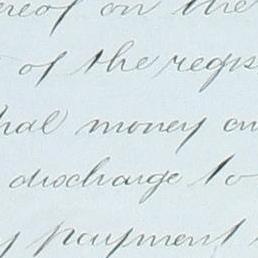 ereof on the
of the regis
hal money on
discharge to
payment